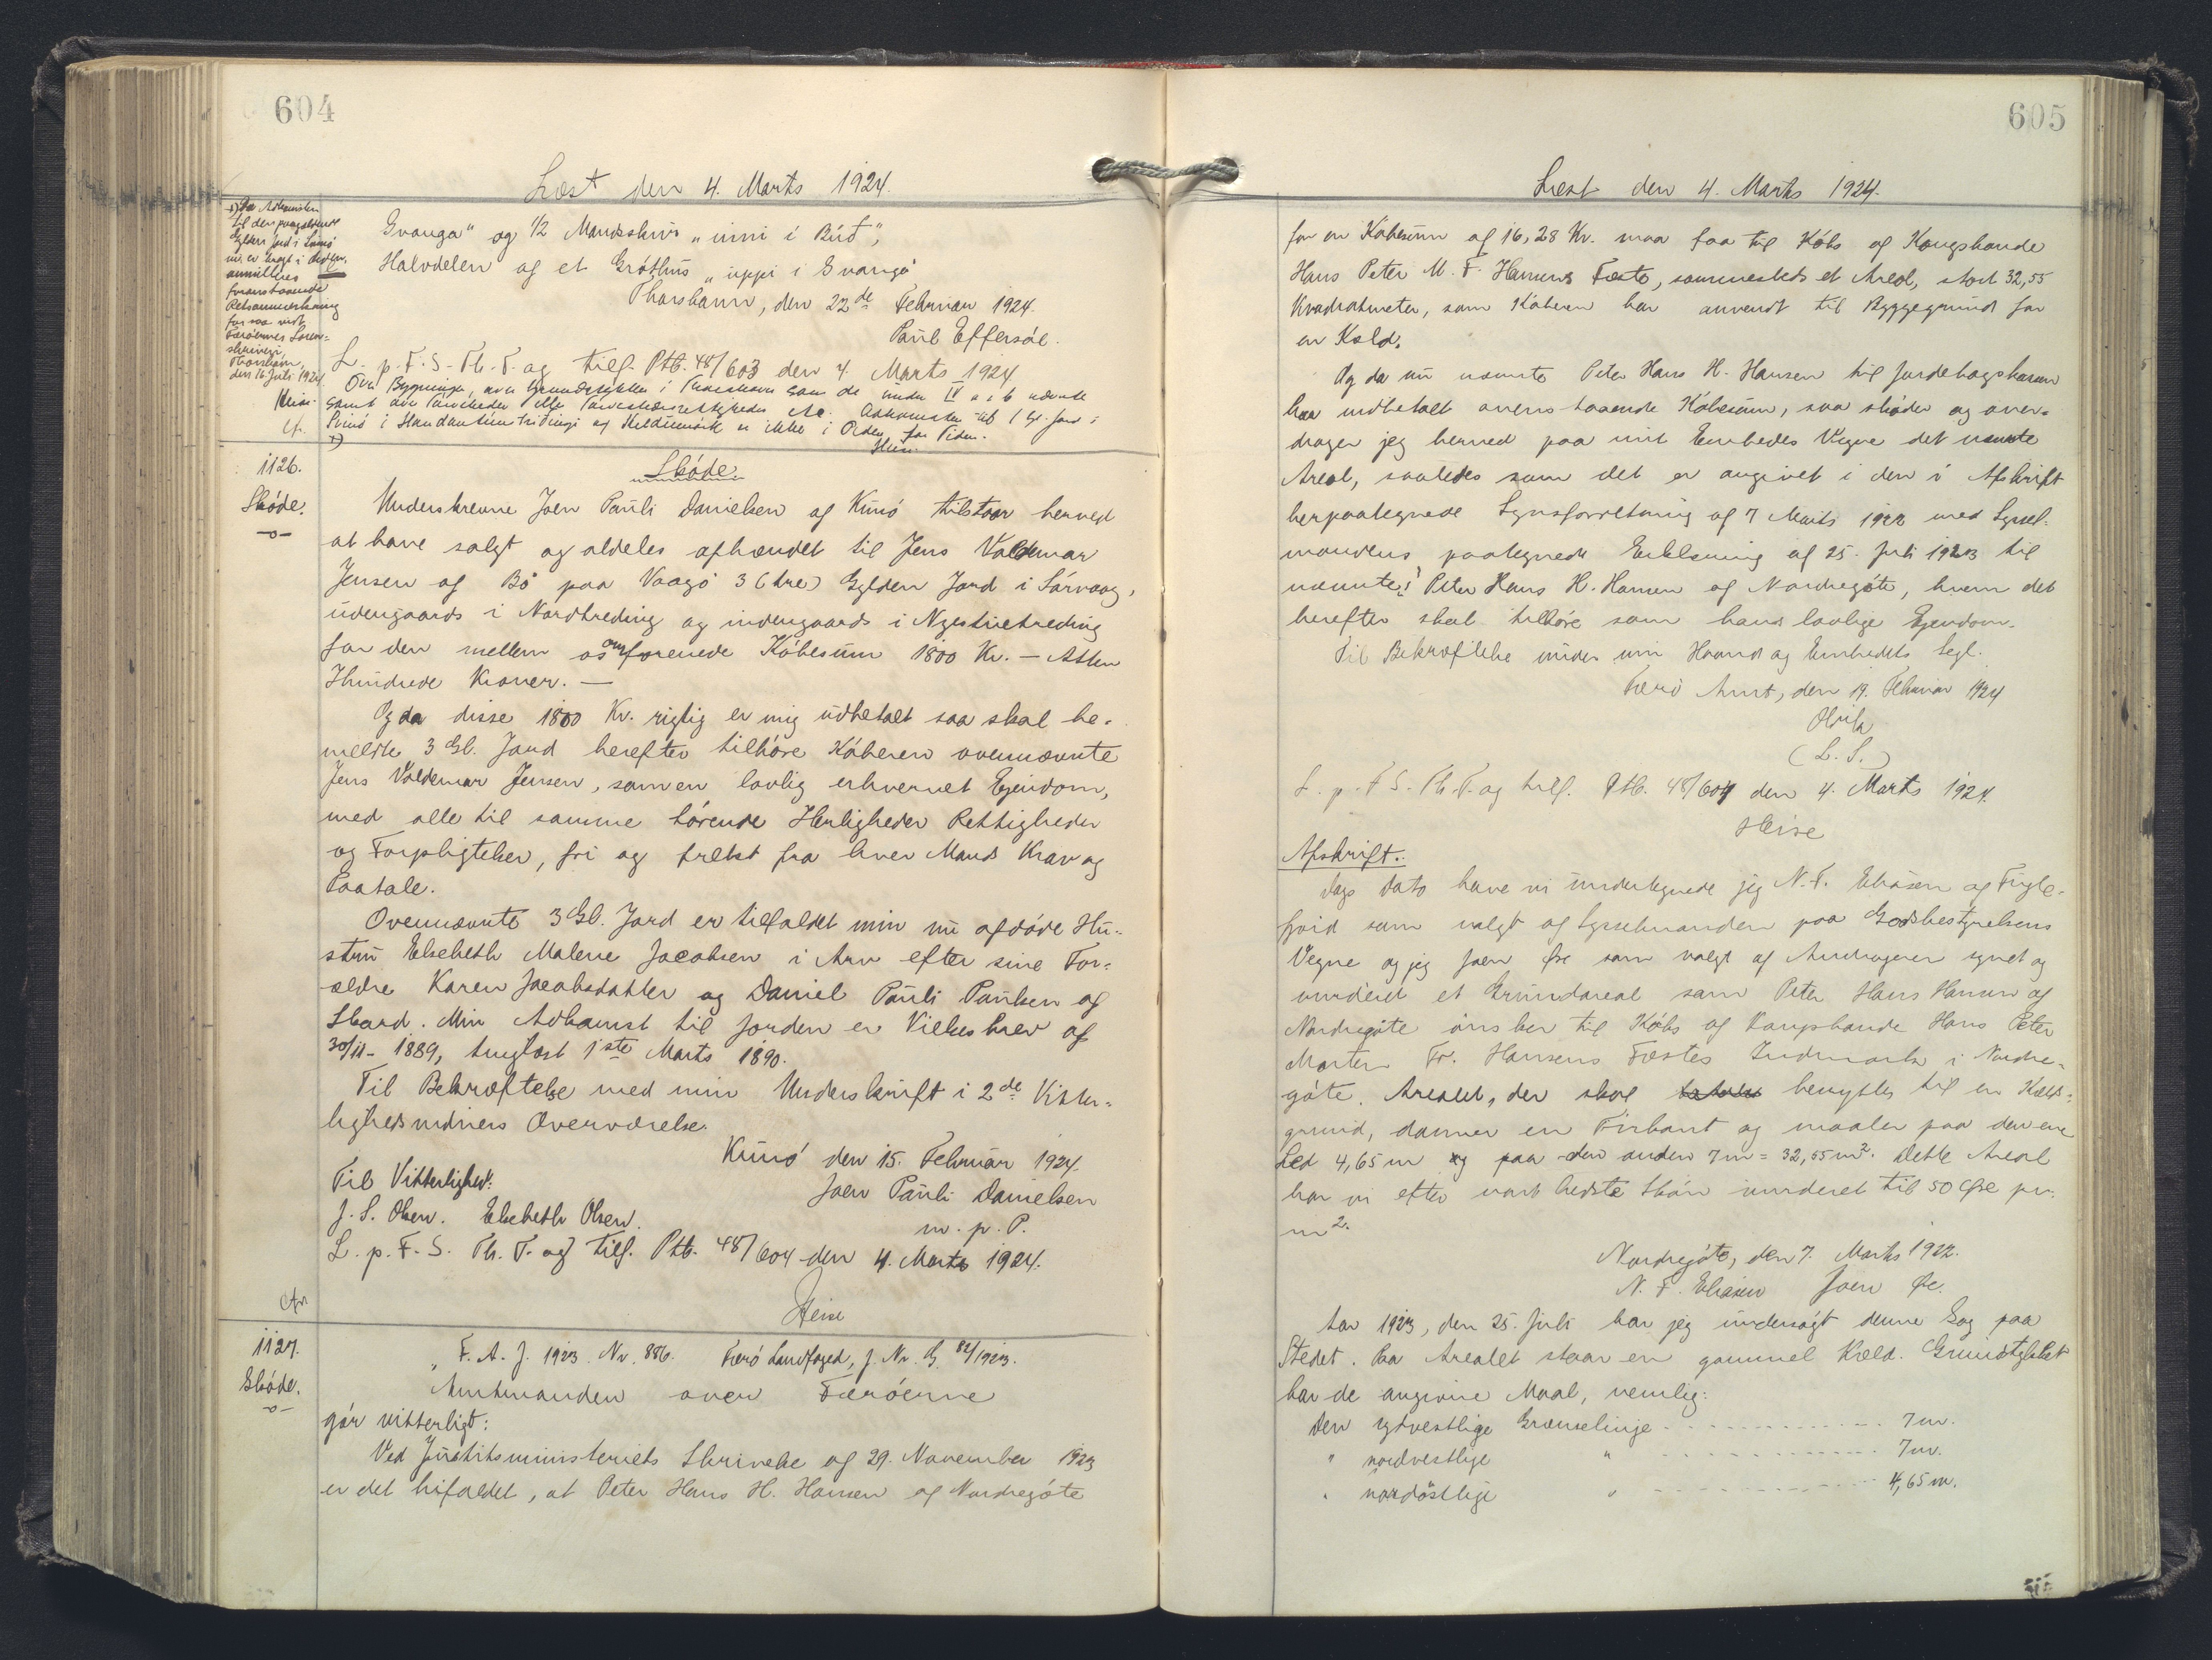 604
Læst den 4. Marts 1924.
+) Da Adkomsten
til den paagældende
Gylden Jord i Svinö
nu er bragt i Orden,
annulleres
foranstaaende
Retsanmærkning
for saa vidt
Færöernes Soren-
skriveri,
Thorshavn,
den 16 Juli 1924
Heise.
Gvanga" og 1/2 Mandsskivs "inni i Búð",
Halvdelen af et Gróthús "uppi i Gvanga"
Thorshavn, den 22de Februar 1924.
Paul Effersöe.
L. p. F. S. Th. T. og tilf. Ptb. 48/603 den 4 Marts 1924
Ovn. Bygninger, ovn. Grundstykker i Thorshavn som de under IV a & b nævnte
samt
Svinö i Handanúmtriðingi og Heldumörk er ikke i Orden for Tiden.
+) Heise.
1126.
Sköde.
Sköde
Underskrevne Joen Pauli Danielsen af Kunö tilstaar herved
at have solgt og aldeles afhændet til Jens Valdemar
Jensen af Bö paa Vaagö 3 (tre) Gylden Jord i Sörvaag,
udengaards i Nordtreding og indengaards i Nystuetreding
for den mellem os omforenede Köbesum 1800 Kr. - Atten
Hundrede Kroner. -
Og da disse 1800 Kr. rigtig er mig udbetalt saa skal be-
meldte 3 Gl. Jord herefter tilhöre Köberen ovennævnte
Jens Valdemar Jensen, som en lovlig erhvervet Ejendom,
med alle til samme hörende Herligheder Rettigheder
og Forpligtelser, fri og frelst fra hver Mands Krav og
Paatale.
Ovennævnte 3 Gl. Jord er tilfaldet min nu afdöde Hu-
stru Elsebeth Malene Jacobsen i Arv efter sine For-
ældre Karen Jacobsdatter og Daniel Pauli Paulsen af
Skard. Min Adkomst til Jorden er Vielsesbrev af
30/11- 1889, tinglæst 1ste Marts 1890.
Til Bekræftelse med min Underskrift i 2de Vitter-
lighedsvidners Overværelse.
Kunö den 15. Februar 1924.
Til Vitterlighed:
Joen Pauli Danielsen
J. S. Olsen. Elsebeth Olsen.
m. p. P.
L. p. F. S. Th. T. og tilf. Ptb. 48/604 den 4. Marts 1924.
Heise
1127.
Sköde.
"F. A. J. 1923. Nr. 886. Færö Landfoged, J. Nr. G. 82/1923.
Amtmanden over Færöerne
gör vitterligt:
Ved Justitsministeriets Skrivelse af 29. November 1923
er det bifaldet, at Peter Hans H. Hansen af Nordregöte
605
Læst den 4. Marts 1924.
for en Köbesum af 16,28 Kr. maa faa til Köbs af Kongsbonde
Hans Peter M. F. Hansens Fæste, sammesteds et Areal, stort 32,55
Kvadratmeter, som Köberen har anvendt til Byggegrund for
en Kæld.
Og da nu nævnte Peter Hans H. Hansen til Jordebogskassen
har indbetalt ovenstaaende Köbesum, saa sköder og over-
drager jeg herved paa mit Embedes Vegne det nævnte
Areal, saaledes som det er angivet i den i Afskrift
herpaategnede Synsforretning af 7 Marts 1922 med Syssel-
mandens paategnede Erklæring af 25. Juli 1923 til
nævnte: Peter Hans H. Hansen af Nordregöte, hvem det
herefter skal tilhöre som hans lovlige Ejendom.
Til Bekræftelse under min Haand og Embedets Segl.
Færö Amt, den 19. Februar 1924
Olrik
(L. S.)
L. p. F. S. Th. T. og tilf. Ptb. 48/604 den 4. Marts 1924.
Heise
Afskrift.
Dags Dato have vi undertegnede jeg N. F. Eliasen af Fugle-
fjord som valgt af Sysselmanden paa Godsbestyrelsens
Vegne og jeg Joen Øre som valgt af Andrageren synet og
vurderet et Grundareal som Peter Hans Hansen af
Nordregöte önsker til Köbs af Kongsbonde Hans Peter
Morten Fr. Hansens Fæstes Indmark i Nordre-
göte. Arealet, der skal benyttes til en Kæld-
grund, danner en Firkant og maaler paa den ene
Led 4,65 m og paa den anden 7 m = 32,55 m². Dette Areal
har vi efter vort bedste Skön vurderet til 50 Øre pr.
m².
Nordregöte, den 7. Marts 1922.
N. F. Eliasen Joen Øre.
Aar 1923, den 25. Juli har jeg undersögt denne Sag paa
Stedet. Paa Arealet staar en gammel Kæld. Grundstykket
har de angivne Maal, nemlig:
Den sydvestlige Grænselinje - - - - 7 m.
" nordvestlige " - - - - 7 m.
" nordöstlige " - - - - 4,65 m.